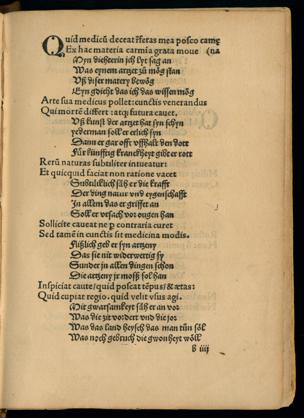 Quid medicū deceat r̄fetas mea posco camę
Ex hac materia carmīa grata moue (na
Myn dichterin ich byt sag an
Was eynem artzet zů mög stan
Vß diser matery bewög
Eyn gdicht das ich das wissen mög
Arte sua medicus pollet: cunctis venerandus
Qui mortē differt: atqꝫ futura cauet.
Vß kunst der artzet hat syn schyn
yederman soll er erlich syn
Dann er gar offt vffhalt den dott
Für künfftig kranckheyt gibt er rott
Rerū naturas subtiliter intueatur:
Et quicquid faciat non ratione vacet
Subtiklich säh er die krafft
Der ding natur vnd eygenschafft
In allem das er griffet an
Soll er vrsach vor ougen han
Sollicite caueat ne p contraria curet
Sed tamē in cunctis sit medicina modis.
Flißlich geb er syn artzeny
Das sie nit widerwertig sy
Sunder in allen dingen schon
Die artzeny zr moß sol han
Inspiciat caute/ quid poscat tēpus/ & ætas:
Quid cupiat regio. quid velit vsus agi.
Mit gwarsamkeyt säh er an vor
Was die zit vordert vnd die jor
Was das land heysch das man tün söl
Was noch gebruch die gwonheyt wöll
B iiij